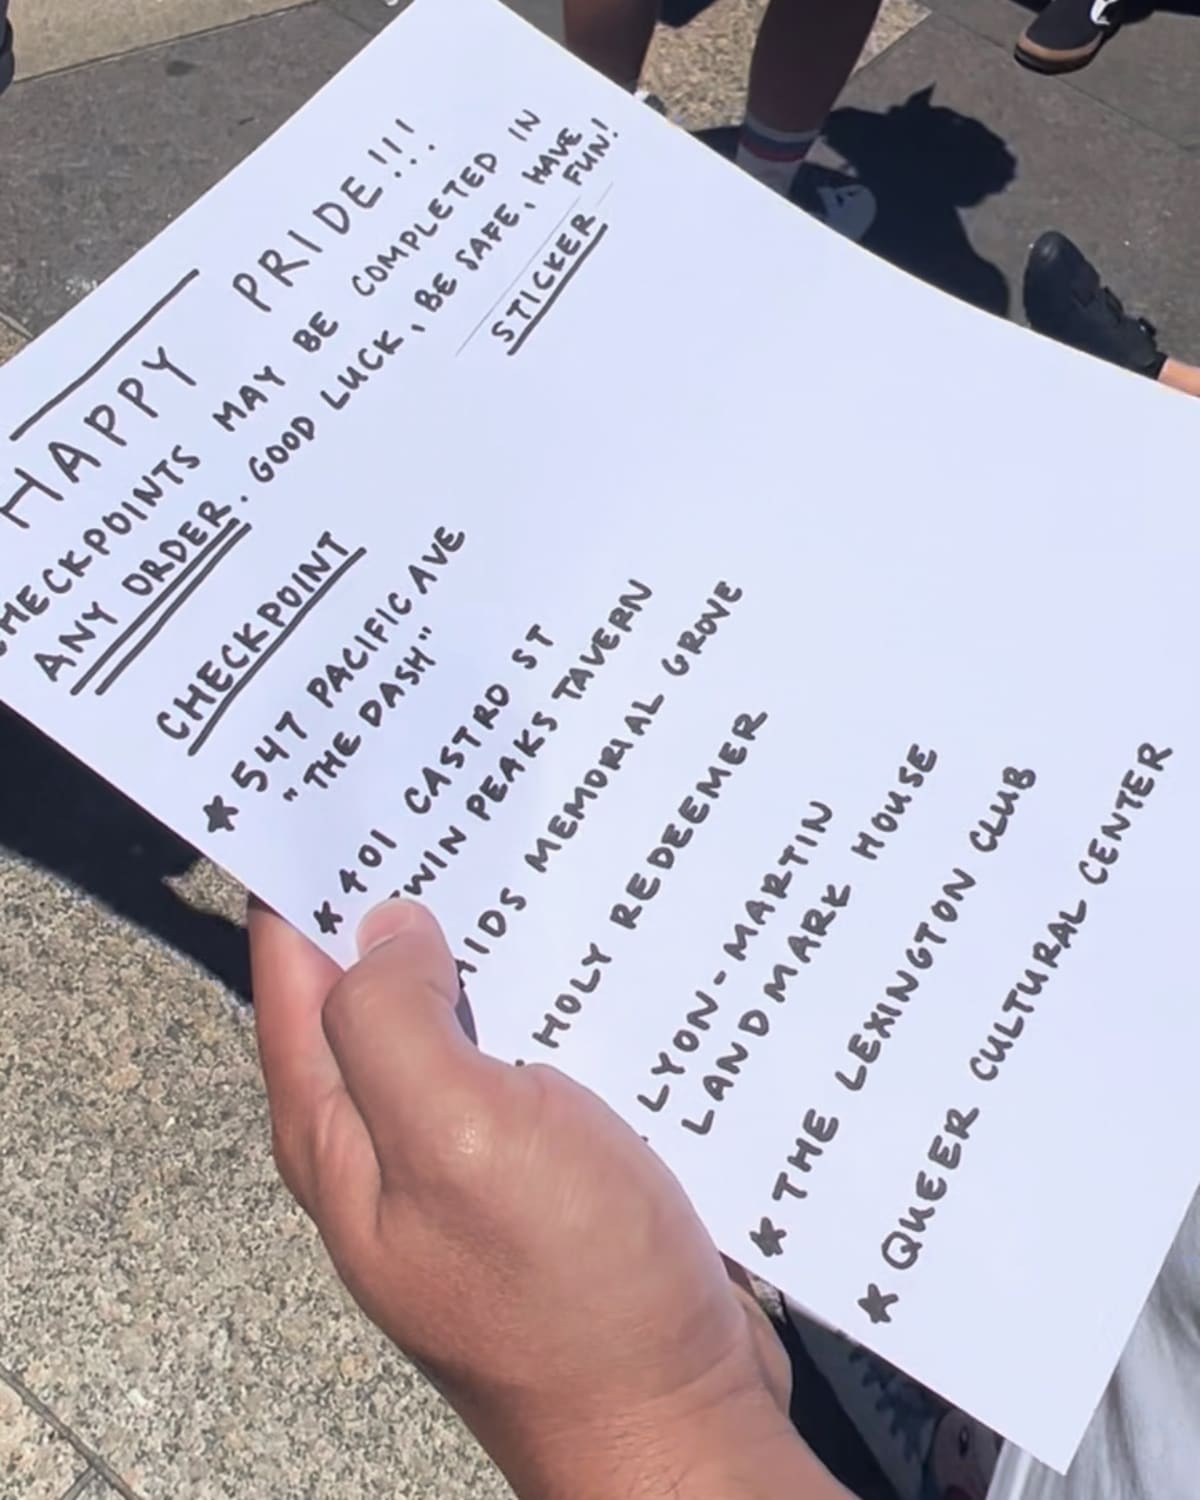 HAPPY PRIDE!!!
CHECKPOINTS MAY BE COMPLETED IN
ANY ORDER. GOOD LUCK, BE SAFE, HAVE
FUN!
CHECKPOINT STICKER
★ 547 PACIFIC AVE
"THE DASH"
★ 401 CASTRO ST
TWIN PEAKS TAVERN
AIDS MEMORIAL GROVE
HOLY REDEEMER
LYON-MARTIN
LANDMARK HOUSE
★ THE LEXINGTON CLUB
★ QUEER CULTURAL CENTER